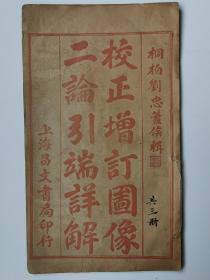 桐柏劉忠蓋侯輯
校正增訂圖像
二論引端詳解
上海昌文書局印行
共三冊